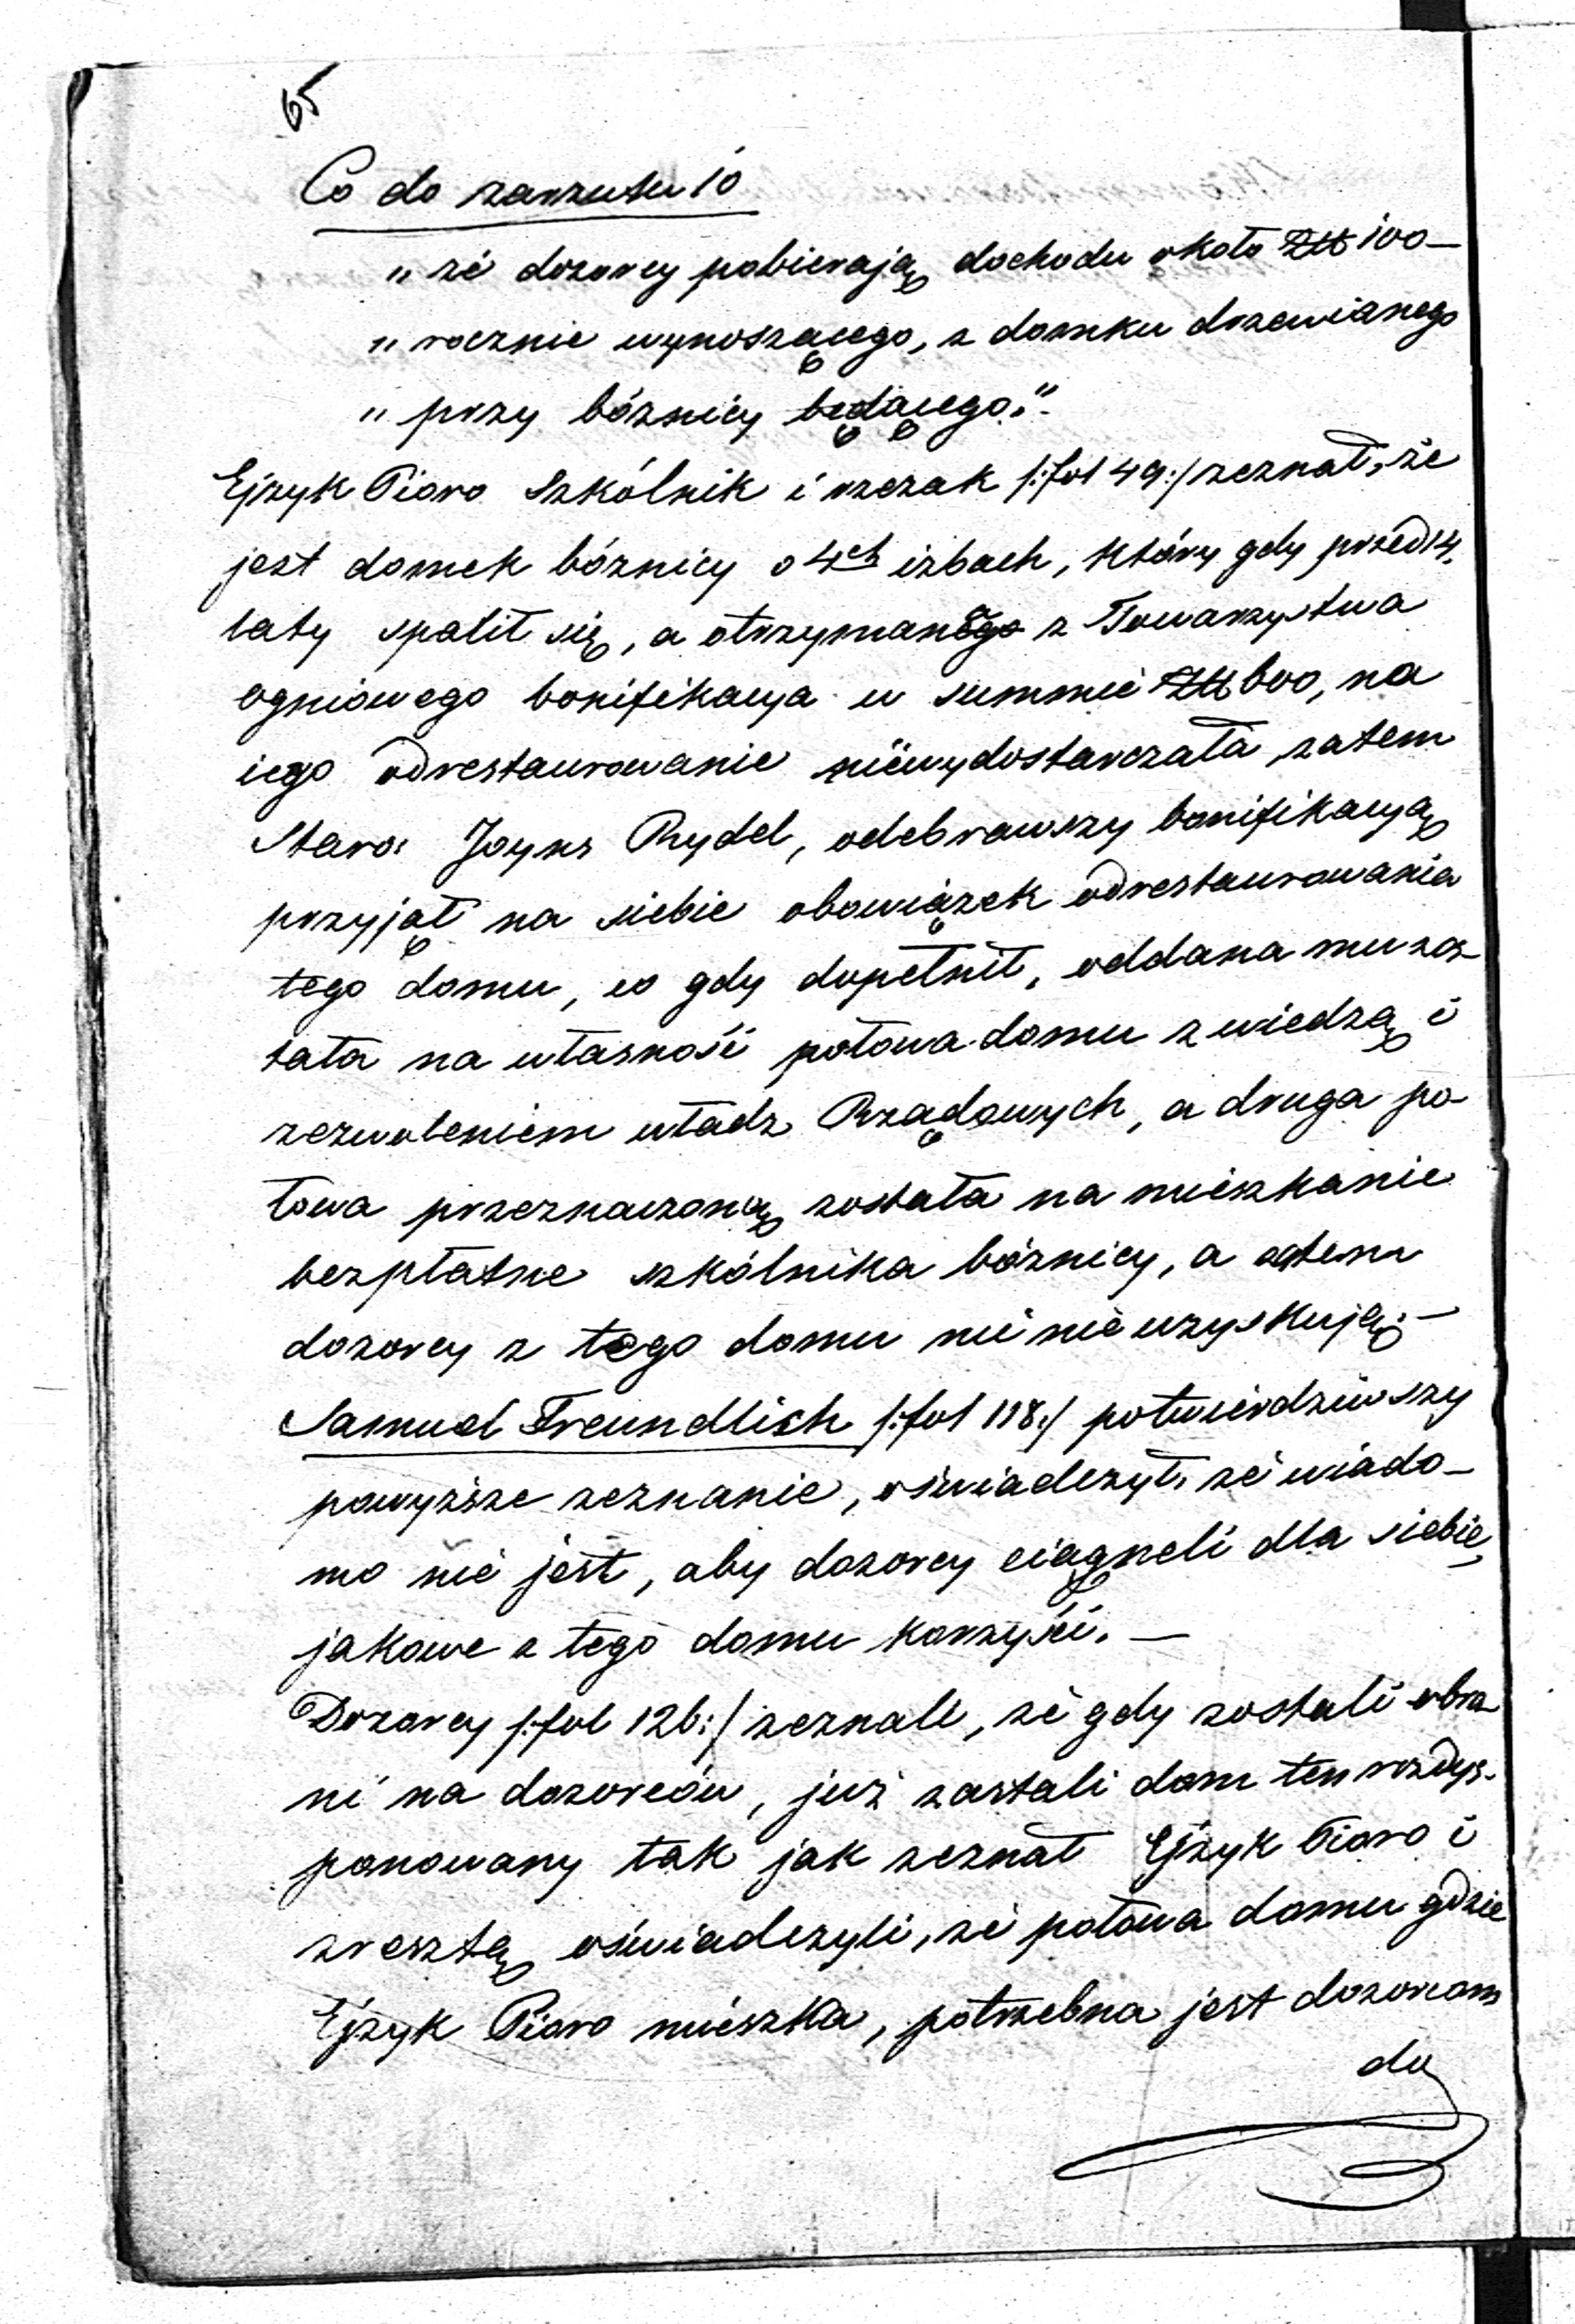 65
Co do zarzutu 10
„ że dozorcy pobierają dochodu około Złł 100 —
„ rocznie wynoszącego, z domku drzewianego
„ przy bóżnicy będącego."
Ejzyk Pioro Szkólnik i rzezak /:fol 49:/ zeznał, że
jest domek bóżnicy o 4ch izbach, który gdy przed 14.
laty spalił się, a otrzymanego z Towarzystwa
ogniowego bonifikacya w summie Złł 600, na
iego odrestaurowanie niewydostarczała, zatem
Staro: Rydel, odebrawszy bonifikacyą
przyjął na siebie obowiązek odrestaurowania
tego domu, co gdy dopełnił, oddana mu zos-
tała na własność połowa domu z wiedzą i
zezwoleniem władz Rządowych, a druga po-
łowa przeznaczoną została na mieszkanie
bezpłatne szkólnika bóżnicy, a zatem
dozorcy z tego domu nic nie uzyskują. —
Samuel Freundlich /:fol 118:/ potwierdziwszy
powyższe zeznanie, oświadczył, że wiado-
mo nie jest, aby dozorcy ciągneli dla siebie,
jakowe z tego domu korzyści. —
Dozorcy /:fol 126:/ zeznali, że gdy zostali obra-
ni na dozorców, już zastali dom ten rozdys-
ponowany tak jak zeznał Ejzyk Pioro i
zresztą oświadczyli, że połowa domu gdzie
Ejzyk Pioro mieszka, potrzebna jest dozorcom
do